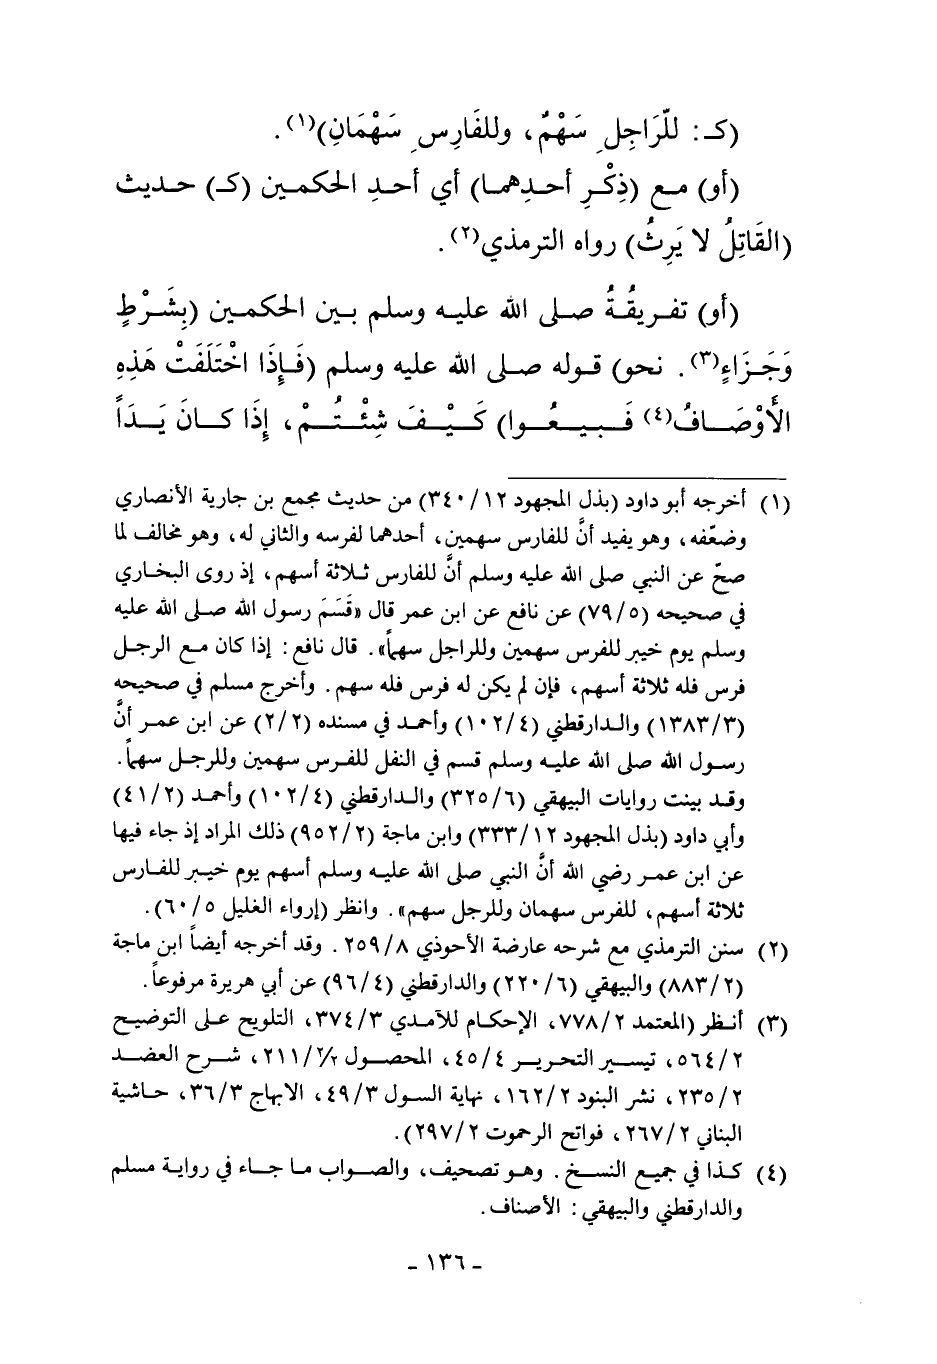 (كـ: للَّرَاجِلِ سَهْمٌ، وللفَارِسِ سَهْمَانِ)(١).
(أو) مـع (ذِكْرِ أحـدِهمـا) أي أحـدِ الحكمـين (كـ) حـديث
(القَاتِلُ لا يَرِثُ) رواه الترمذي(٢).
(أو) تفـريقُهُ صـلى الله عليـه وسلم بـين الحكمـين (بِشَـرْطٍ
وَجَـزَاءٍ(٣). نحو) قـوله صـلى الله عليـه وسلم (فَـإِذَا اخْتَلَفَتْ هَذِهِ
الأَوْصَـافُ(٤) فَـبِـيـعُـوا) كَـيْـفَ شِئْـتُـمْ، إِذَا كـانَ يَـدَاً
(١) أخرجه أبو داود (بذل المجهود ١٢/٣٤٠) من حديث مجمع بن جارية الأنصاري
وضعّفه، وهو يفيد أنَّ للفارس سهمين، أحدهما لفرسه والثاني له، وهو مخالف لما
صحّ عن النبي صلى الله عليه وسلم أنَّ للفارس ثـلاثة أسهم، إذ روى البخـاري
في صحيحه (٥/٧٩) عن نافع عن ابن عمر قال «قَسَمَ رسول الله صـلى الله عليه
وسلم يوم خيبر للفرس سهمين وللراجل سهماً». قال نافع: إذا كان مـع الرجـل
فرس فله ثلاثة أسهم، فإن لم يكن له فرس فله سهم. وأخرج مسلم في صحيحه
(٣/١٣٨٣) والـدارقطني (٤/١٠٢) وأحمـد في مسنده (٢/٢) عن ابن عمـر أنَّ
رسـول الله صلى الله عليـه وسلم قسم في النفل للفـرس سهمين وللرجـل سهمـاً.
وقـد بينت روايات البيهقي (٦/٣٢٥) والـدارقطني (٤/١٠٢) وأحمـد (٢/٤١)
وأبي داود (بذل المجهود ١٢/٣٣٣) وابن ماجة (٢/٩٥٢) ذلك المراد إذ جاء فيها
عن ابن عمـر رضي الله أنَّ النبي صلى الله عليـه وسلم أسهم يوم خيـبر للفـارس
ثلاثة أسهم، للفرس سهمان وللرجل سهم». وانظر (إرواء الغليل ٥/٦٠).
(٢) سنن الترمذي مع شرحه عارضة الأحوذي ٨/٢٥٩. وقد أخرجه أيضاً ابن ماجة
(٢/٨٨٣) والبيهقي (٦/٢٢٠) والدارقطني (٤/٩٦) عن أبي هريرة مرفوعاً.
(٣) أنـظر (المعتمد ٢/٧٧٨، الإحكـام للآمـدي ٣/٣٧٤، التلويح عـلى التوضيـح
٢/٥٦٤، تيسـير التحريـر ٤/٤٥، المحصـول ٢/٢/٢١١، شـرح العضـد
٢/٢٣٥، نشر البنود ٢/١٦٢، نهاية السول ٣/٤٩، الابهاج ٣/٣٦، حـاشية
البناني ٢/٢٦٧، فواتح الرحموت ٢/٢٩٧).
(٤) كـذا في جميع النسـخ. وهـو تصحيف، والصـواب مـا جـاء في روايـة مسلم
والدارقطني والبيهقي: الأصناف.
- ١٣٦ -